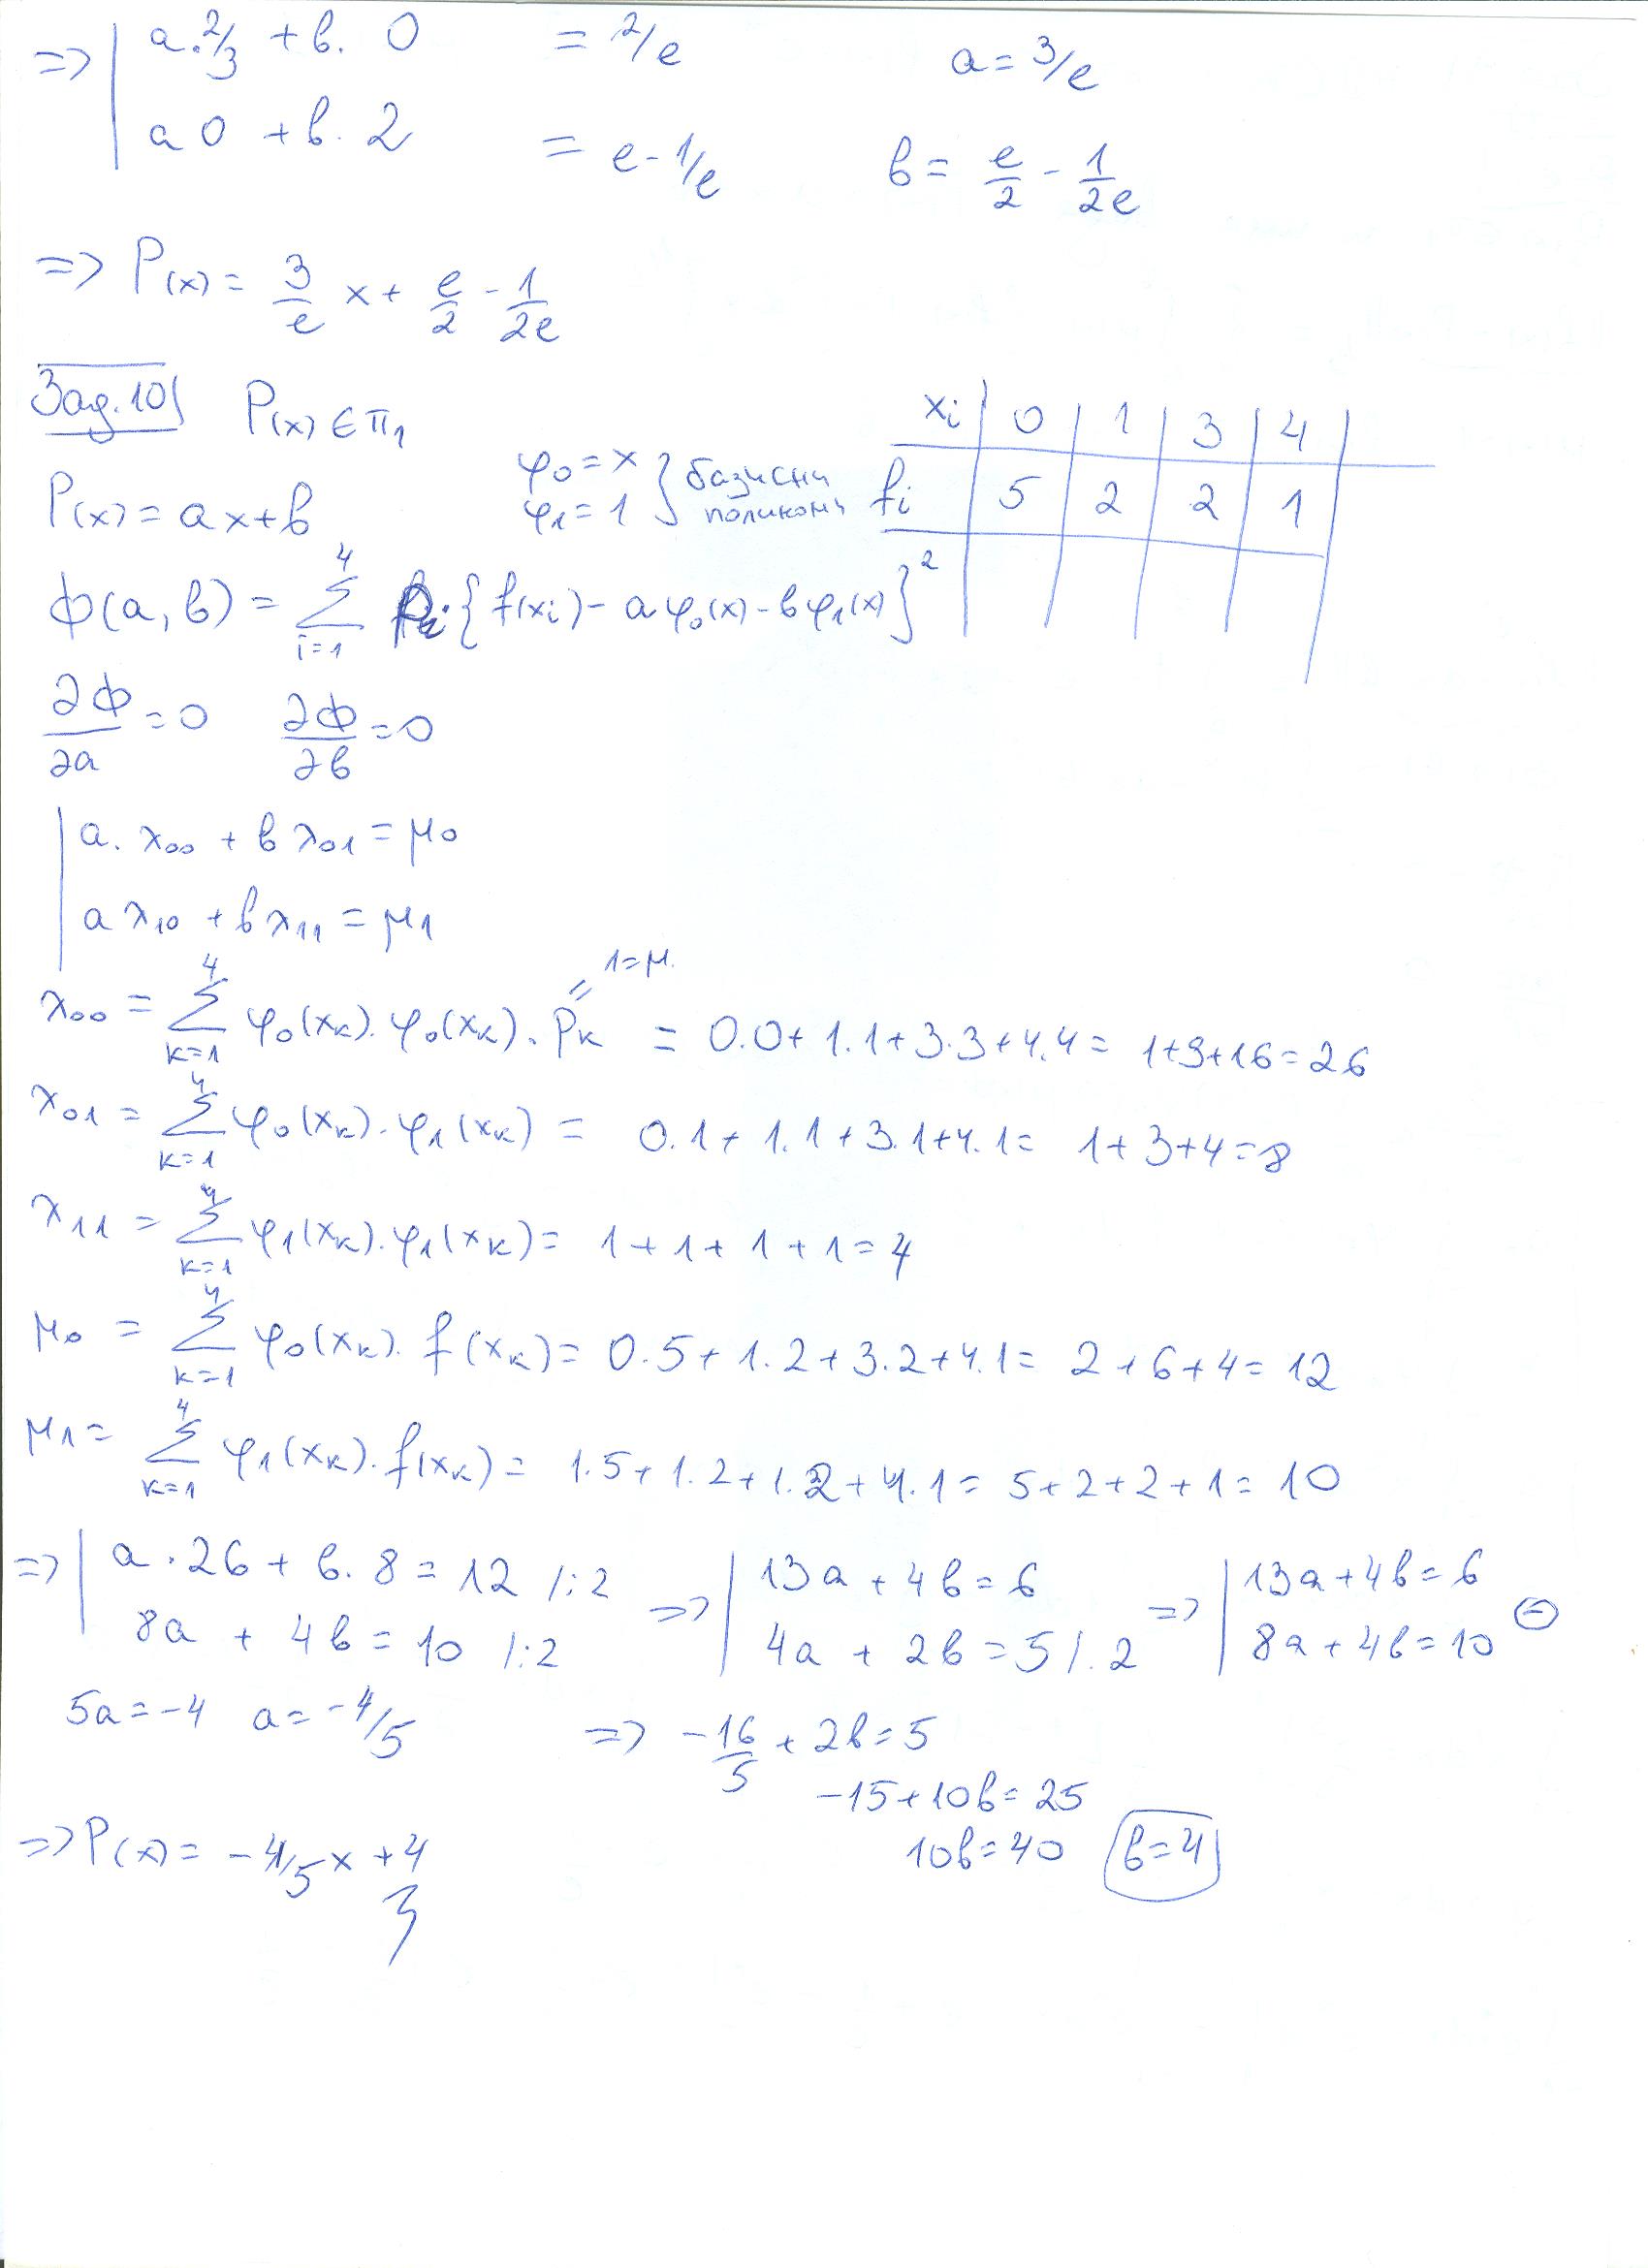 => | a.2/3 + b. 0 = 2/e a = 3/e
a 0 + b. 2 = e - 1/e b = e/2 - 1/2e
=> P(x) = 3/e x + e/2 - 1/2e
Зад.10 P(x) ∈ π1
xi 0 1 3 4
fi 5 2 2 1
φ0 = x
φ1 = 1 } базисни полиноми
P(x) = ax+b
Φ(a,b) = Σ i=1 4 Pi {f(xi) - aφ0(x) - bφ1(x)}²
∂Φ/∂a = 0 ∂Φ/∂b = 0
a. λ00 + b λ01 = μ0
a λ10 + b λ11 = μ1
1=μ.
λ00 = Σ k=1 4 φ0(xk). φ0(xk). Pk = 0.0+ 1.1+3.3+4.4= 1+9+16=26
λ01 = Σ k=1 4 φ0(xk). φ1(xk) = 0.1+ 1.1+3.1+4.1= 1+3+4=8
λ11 = Σ k=1 4 φ1(xk). φ1(xk) = 1+1+1+1=4
μ0 = Σ k=1 4 φ0(xk). f(xk) = 0.5+1.2+3.2+4.1= 2+6+4= 12
μ1 = Σ k=1 4 φ1(xk). f(xk) = 1.5+1.2+1.2+4.1= 5+2+2+1= 10
=> | a.26 + b.8 = 12 /:2 => | 13a + 4b = 6 => | 13a+4b=6
8a + 4b = 10 /:2 4a + 2b = 5 /.2 8a+4b=10 ⊖
5a=-4 a=-4/5 => -16/5 + 2b=5
-15+10b=25
10b=40 b=4
=> P(x)= -4/5x +4